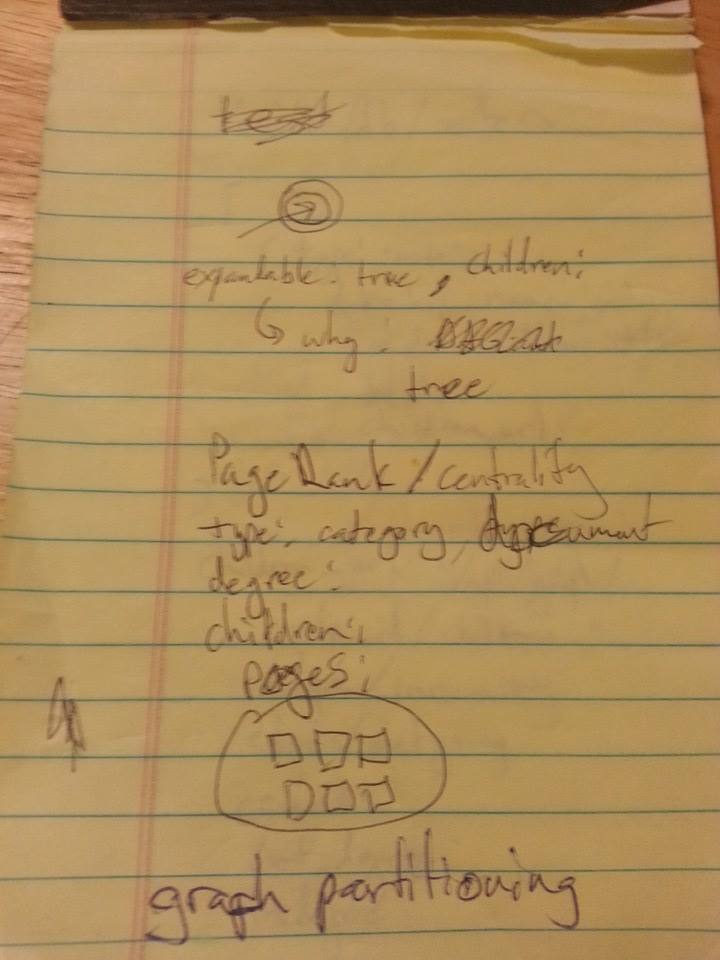 test
expandable: true, children:
why:
tree
PageRank/centrality
type: category,
degree:
children:
pages:
graph partitioning